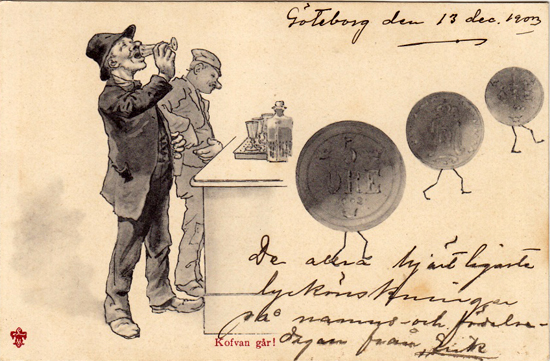 Göteborg den 13 dec. 1903
5
ÖRE
Kofvan går!
De allra hjärtligaste
lyckönskningar
på namns- och födelse-
dagen från